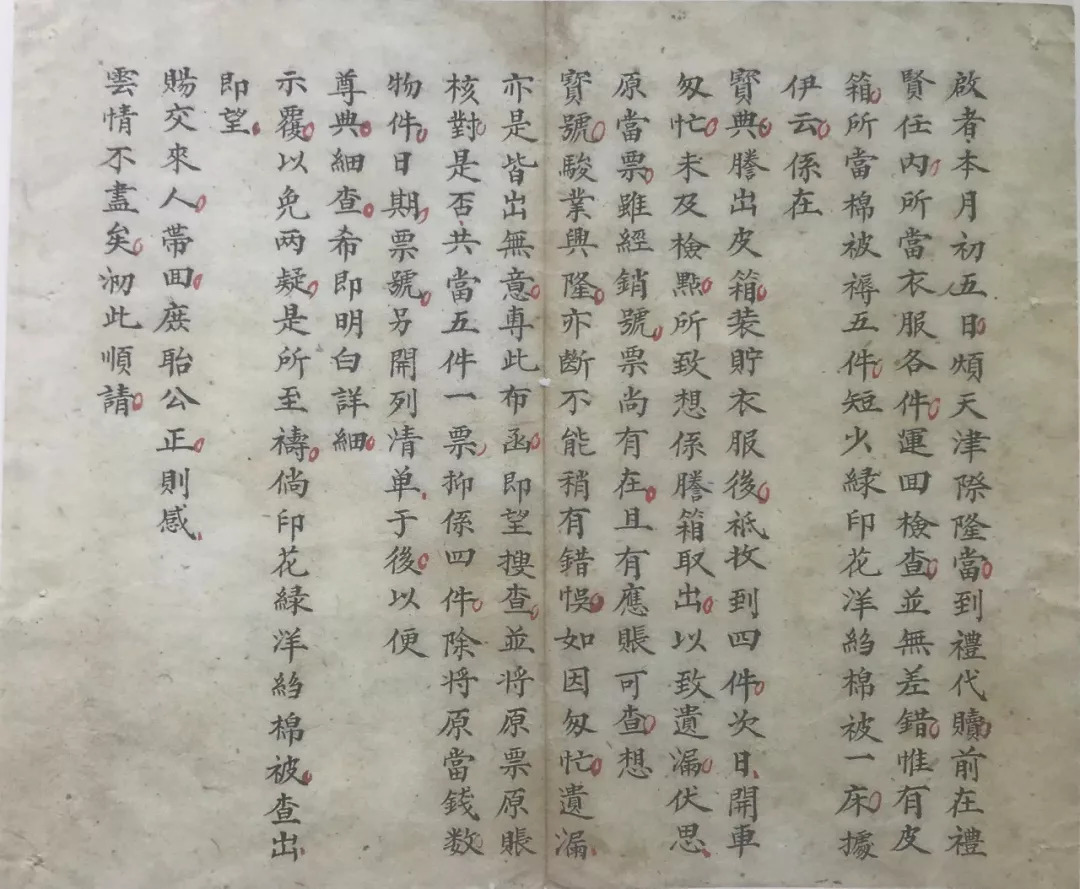 啟者本月初五日煩天津際隆當到禮代贖前在禮
賢任內所當衣服各件運回檢查並無差錯惟有皮
箱所當棉被褥五件短少緑印花洋縐棉被一床據
伊云係在
寳典謄出皮箱装貯衣服後祗收到四件次日開車
匆忙未及檢點所致想係謄箱取出以致遺漏伏思
原當票雖經銷號票尚有在且有應賬可查想
寳號駿業興隆亦斷不能稍有錯悞如因匆忙遺漏
亦是皆出無意専此布函即望搜查並将原票原賬
核對是否共當五件一票抑係四件除将原當錢数
物件日期票號另開列清单于後以便
尊典細查希即明白詳細
示覆以免两疑是所至禱倘印花緑洋縐棉被查出
即望
賜交來人帶回庶昭公正則感
雲情不盡矣泐此順請